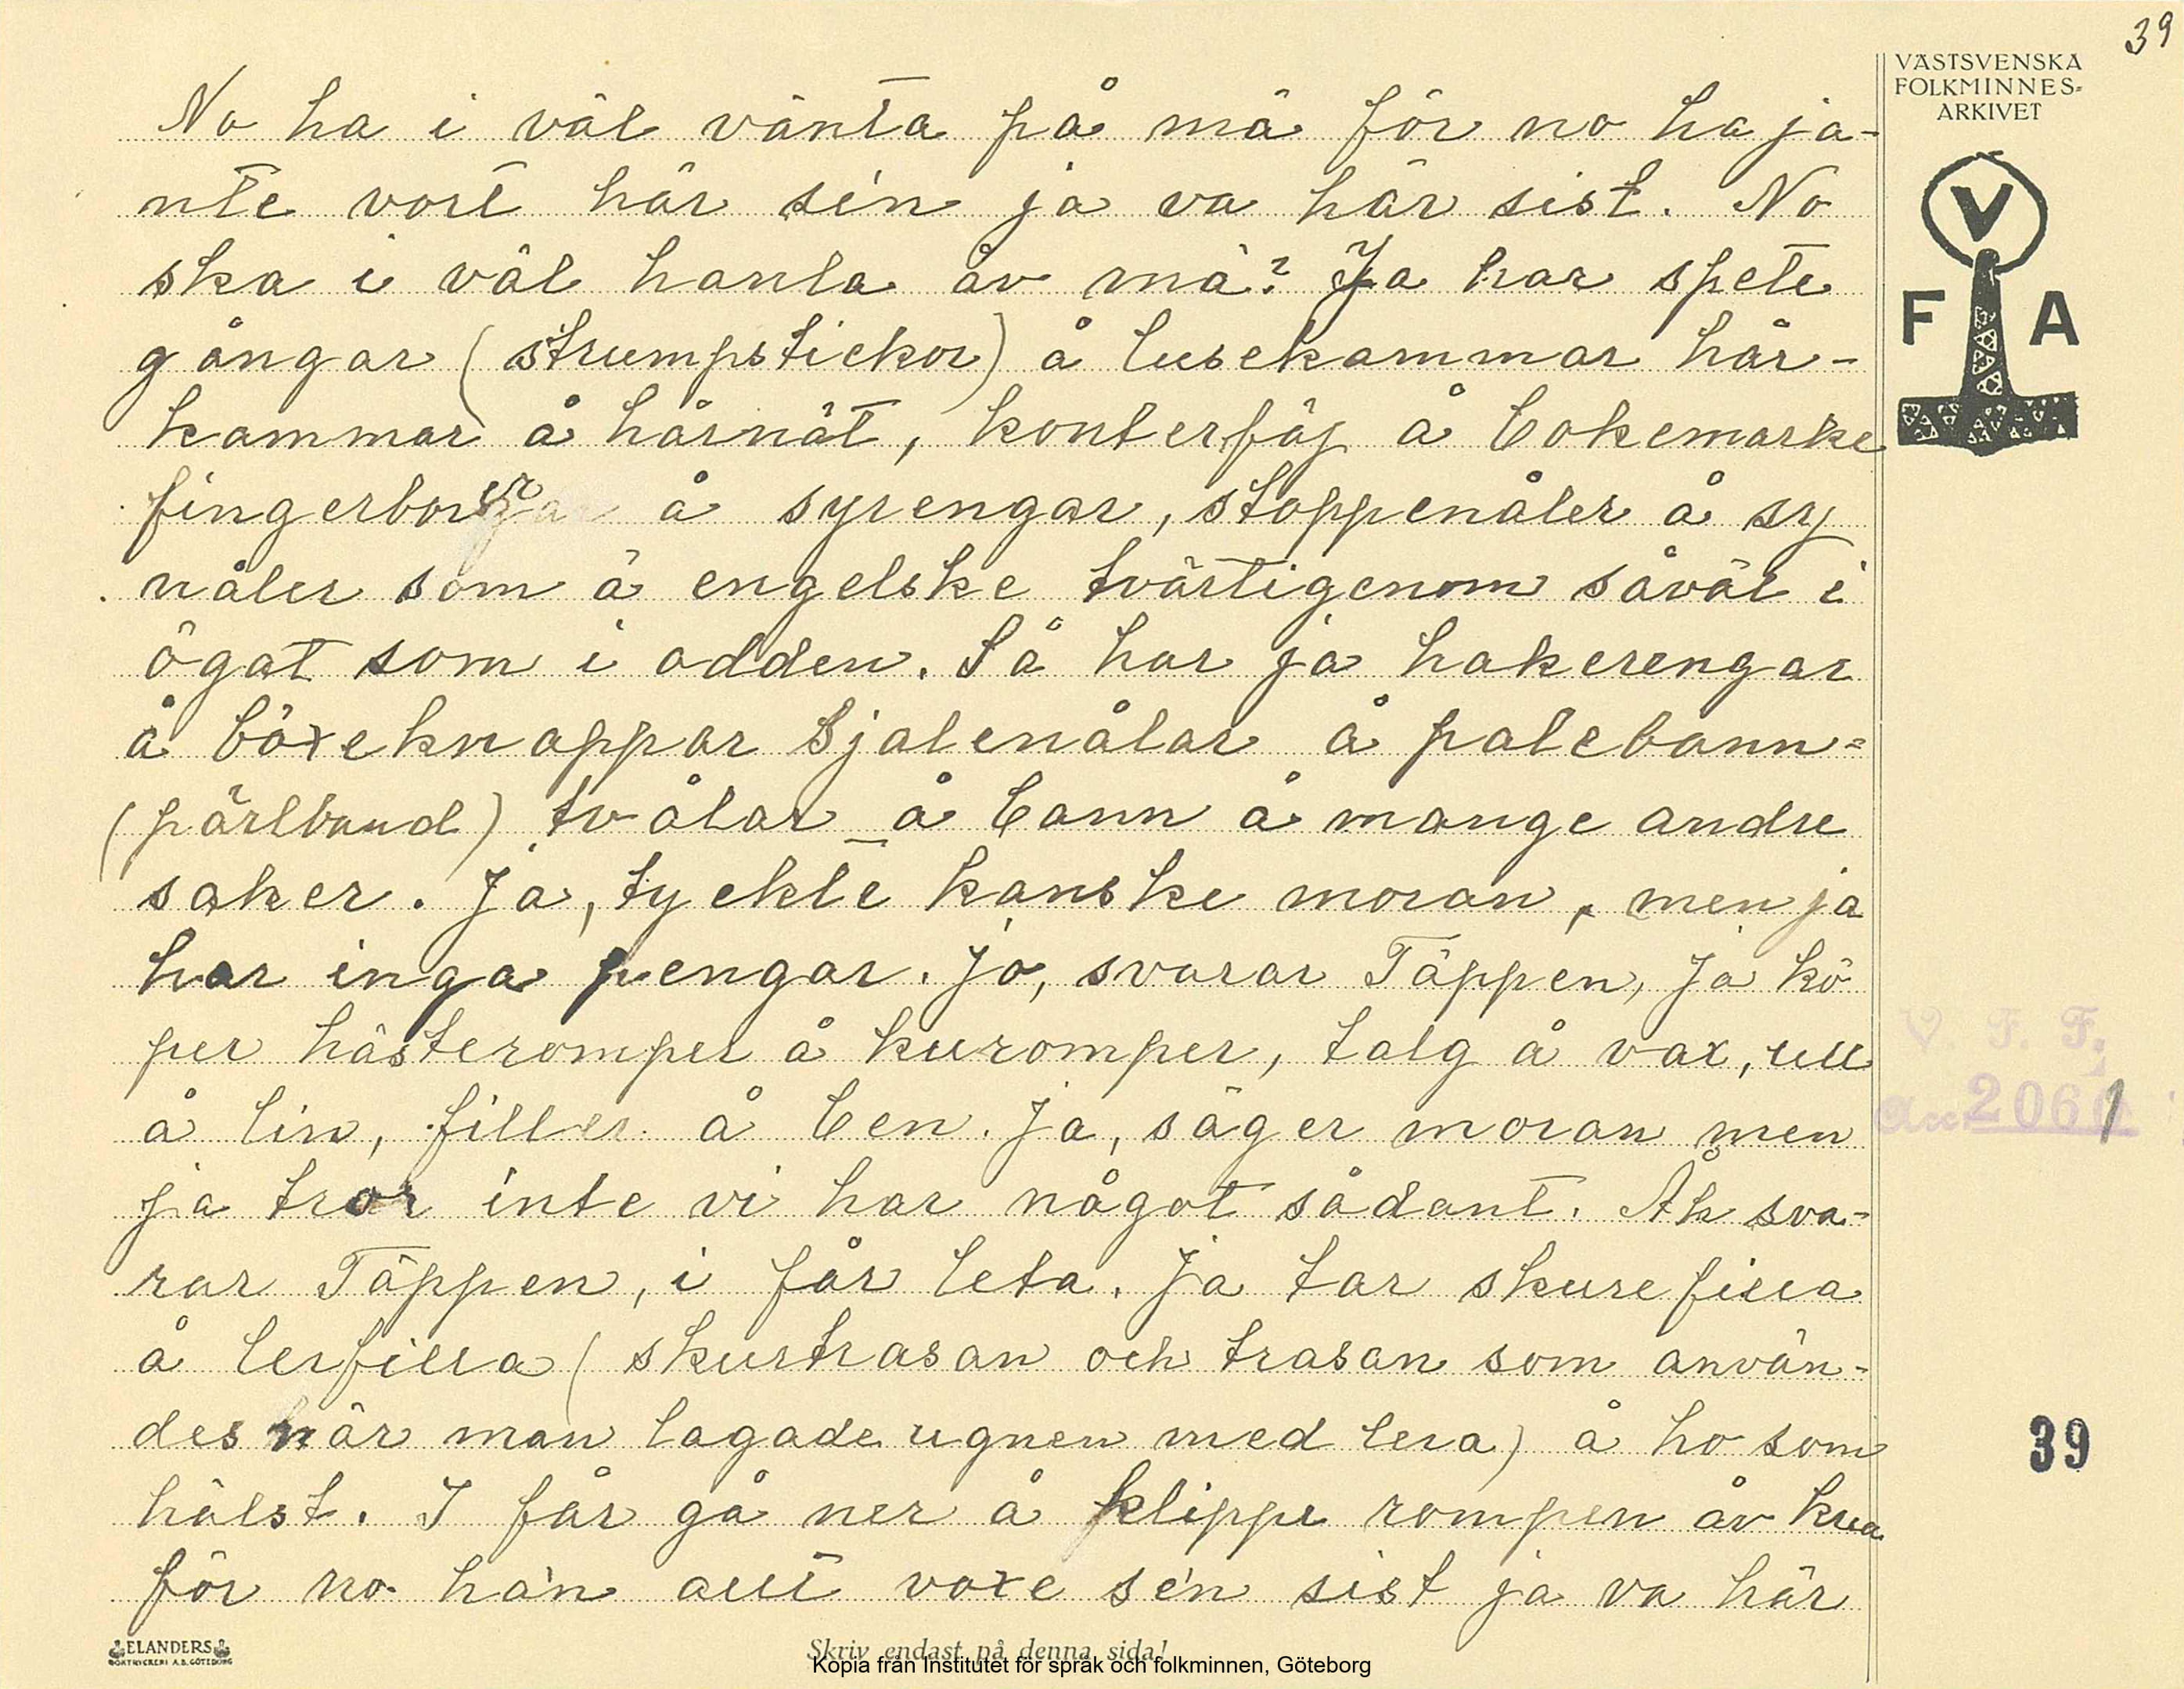 39
VÄSTSVENSKA
FOLKMINNES=
ARKIVET
V
F A
No ha i väl vänta på mä för no ha ja-
nte vort här sén ja va här sist. No
ska i väl hanla åv mä? Ja har spete
gångar (strumpstickor) å lusekammar hår-
kammar å hårnät, konterfäj å bokemarke
fingerborger å syrengar, stoppenåler å sy
nåler som ä engelske tvärtigenom såväl i
ögat som i odden. Så har ja hakerengar
å böxeknappar Sjalenålar å palebann=
(pärlband) tvålar å bann å mange andre
saker. Ja, tyckte kanske moran, men ja
har inga pengar. Jo, svarar Täppen, Ja kö
per hästeromper å kuromper, talg å vax, ull
å lin, filler å ben. Ja, säger moran men
ja tror inte vi har något sådant. Åh sva-
rar Täppen, i får leta. Ja tar skurefilla
å lerfilla (skurtrasan och trasan som använ-
des när man lagade ugnen med lera) å ho som
hälst. I får gå ner å klippe rompen åv kua
för no ha'n allt voxe sén sist ja va här
V. F. F.
Acc 2061
39
ELANDERS
BOKTRYCKERI A.B. GÖTEBORG
Skriv endast på denna sida!
Kopia från Institutet för språk och folkminnen, Göteborg